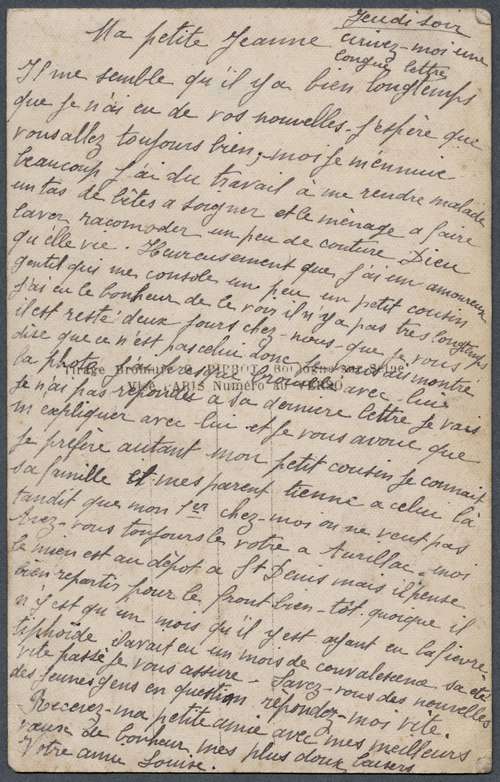 Jeudi soir
Ma petite Jeanne
écrivez-moi une
longue lettre
Il me semble qu'il y a bien longtemps
que je n'ai eu de vos nouvelles. j'espère que
vous allez toujours bien, moi je m'ennuie
beaucoup j'ai du travail à me rendre malade
un tas de bêtes a soigner et le ménage a faire
laver racomoder un peu de couture Dieu
qu'elle vie. Heureusement que j'ai un amoureux
gentil qui me console un peu un petit cousin
j'ai eu le bonheur de le voir il n'y a pas très longtemps
il est resté deux jours chez-nous que je vous
dire que ce n'est pas celui donc je vous avais montré
la photo avec lui
je n'ai pas répondu à sa dernière lettre je vais
m'expliquer avec lui et je vous avoue que
je préfère autant mon petit cousin je connait
sa famille et mes parent tienne a celui là
tandit que mon 1er chez-moi on ne veut pas
Avez-vous toujours le votre a Aurillac - moi
le mien est au dépot a St Denis mais il pense
bien repartir pour le front bien-tôt quoique il
n'y est qu'un mois qu'il y est ayant eu la fièvre
tiphoïde il avait eu un mois de convalescence sa été
vite passé je vous assure. Savez-vous des nouvelles
des jeunes gens en question répondez-moi vite.
Recevez ma petite amie avec mes meilleurs
vœux de bonheur mes plus doux baisers
Votre amie Louise.